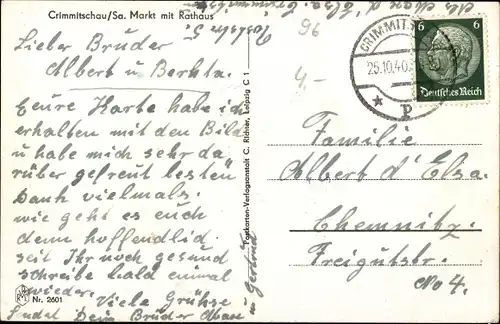 Crimmitschau/Sa. Markt mit Rathaus
Lieber Bruder
Albert u Berhta.
Eeure Karte habe ich
erhalten mit den Bild
u habe mich sehr da
rüber gefreut besten
Dank vielmals.
wie geht es euch
denn hoffendlid.
seit Ihr noch gesund
schreibe bald einmal
wieder. Viele Grühse
Sendet Dein Brüder
u Gertrud
Nr. 2601
Postkarten-Verlagsanstalt C. Richter, Leipzig C 1
96
4,-
CRIMMITS
25.10.40
p
6 6
Deutsches Reich
Familie
Albert d'Elsa.
Chemnitz.
Freigutstr.
No 4.